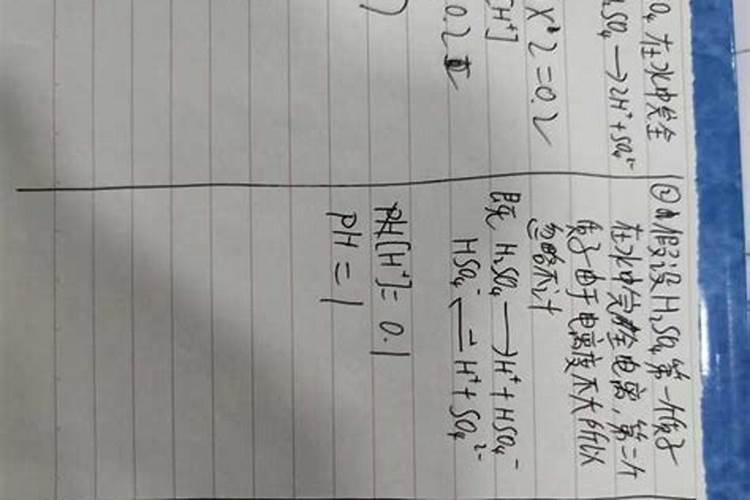 O₄ 在水中完全
₂SO₄ → 2H⁺ + SO₄²⁻
×2 = 0.2
[H⁺]
0.2
②假设 H₂SO₄ 第一个质子
在水中完全电离,第二个
质子由于电离度不大所以
忽略不计
既 H₂SO₄ → H⁺ + HSO₄⁻
HSO₄⁻ ⇌ H⁺ + SO₄²⁻
[H⁺] = 0.1
PH = 1